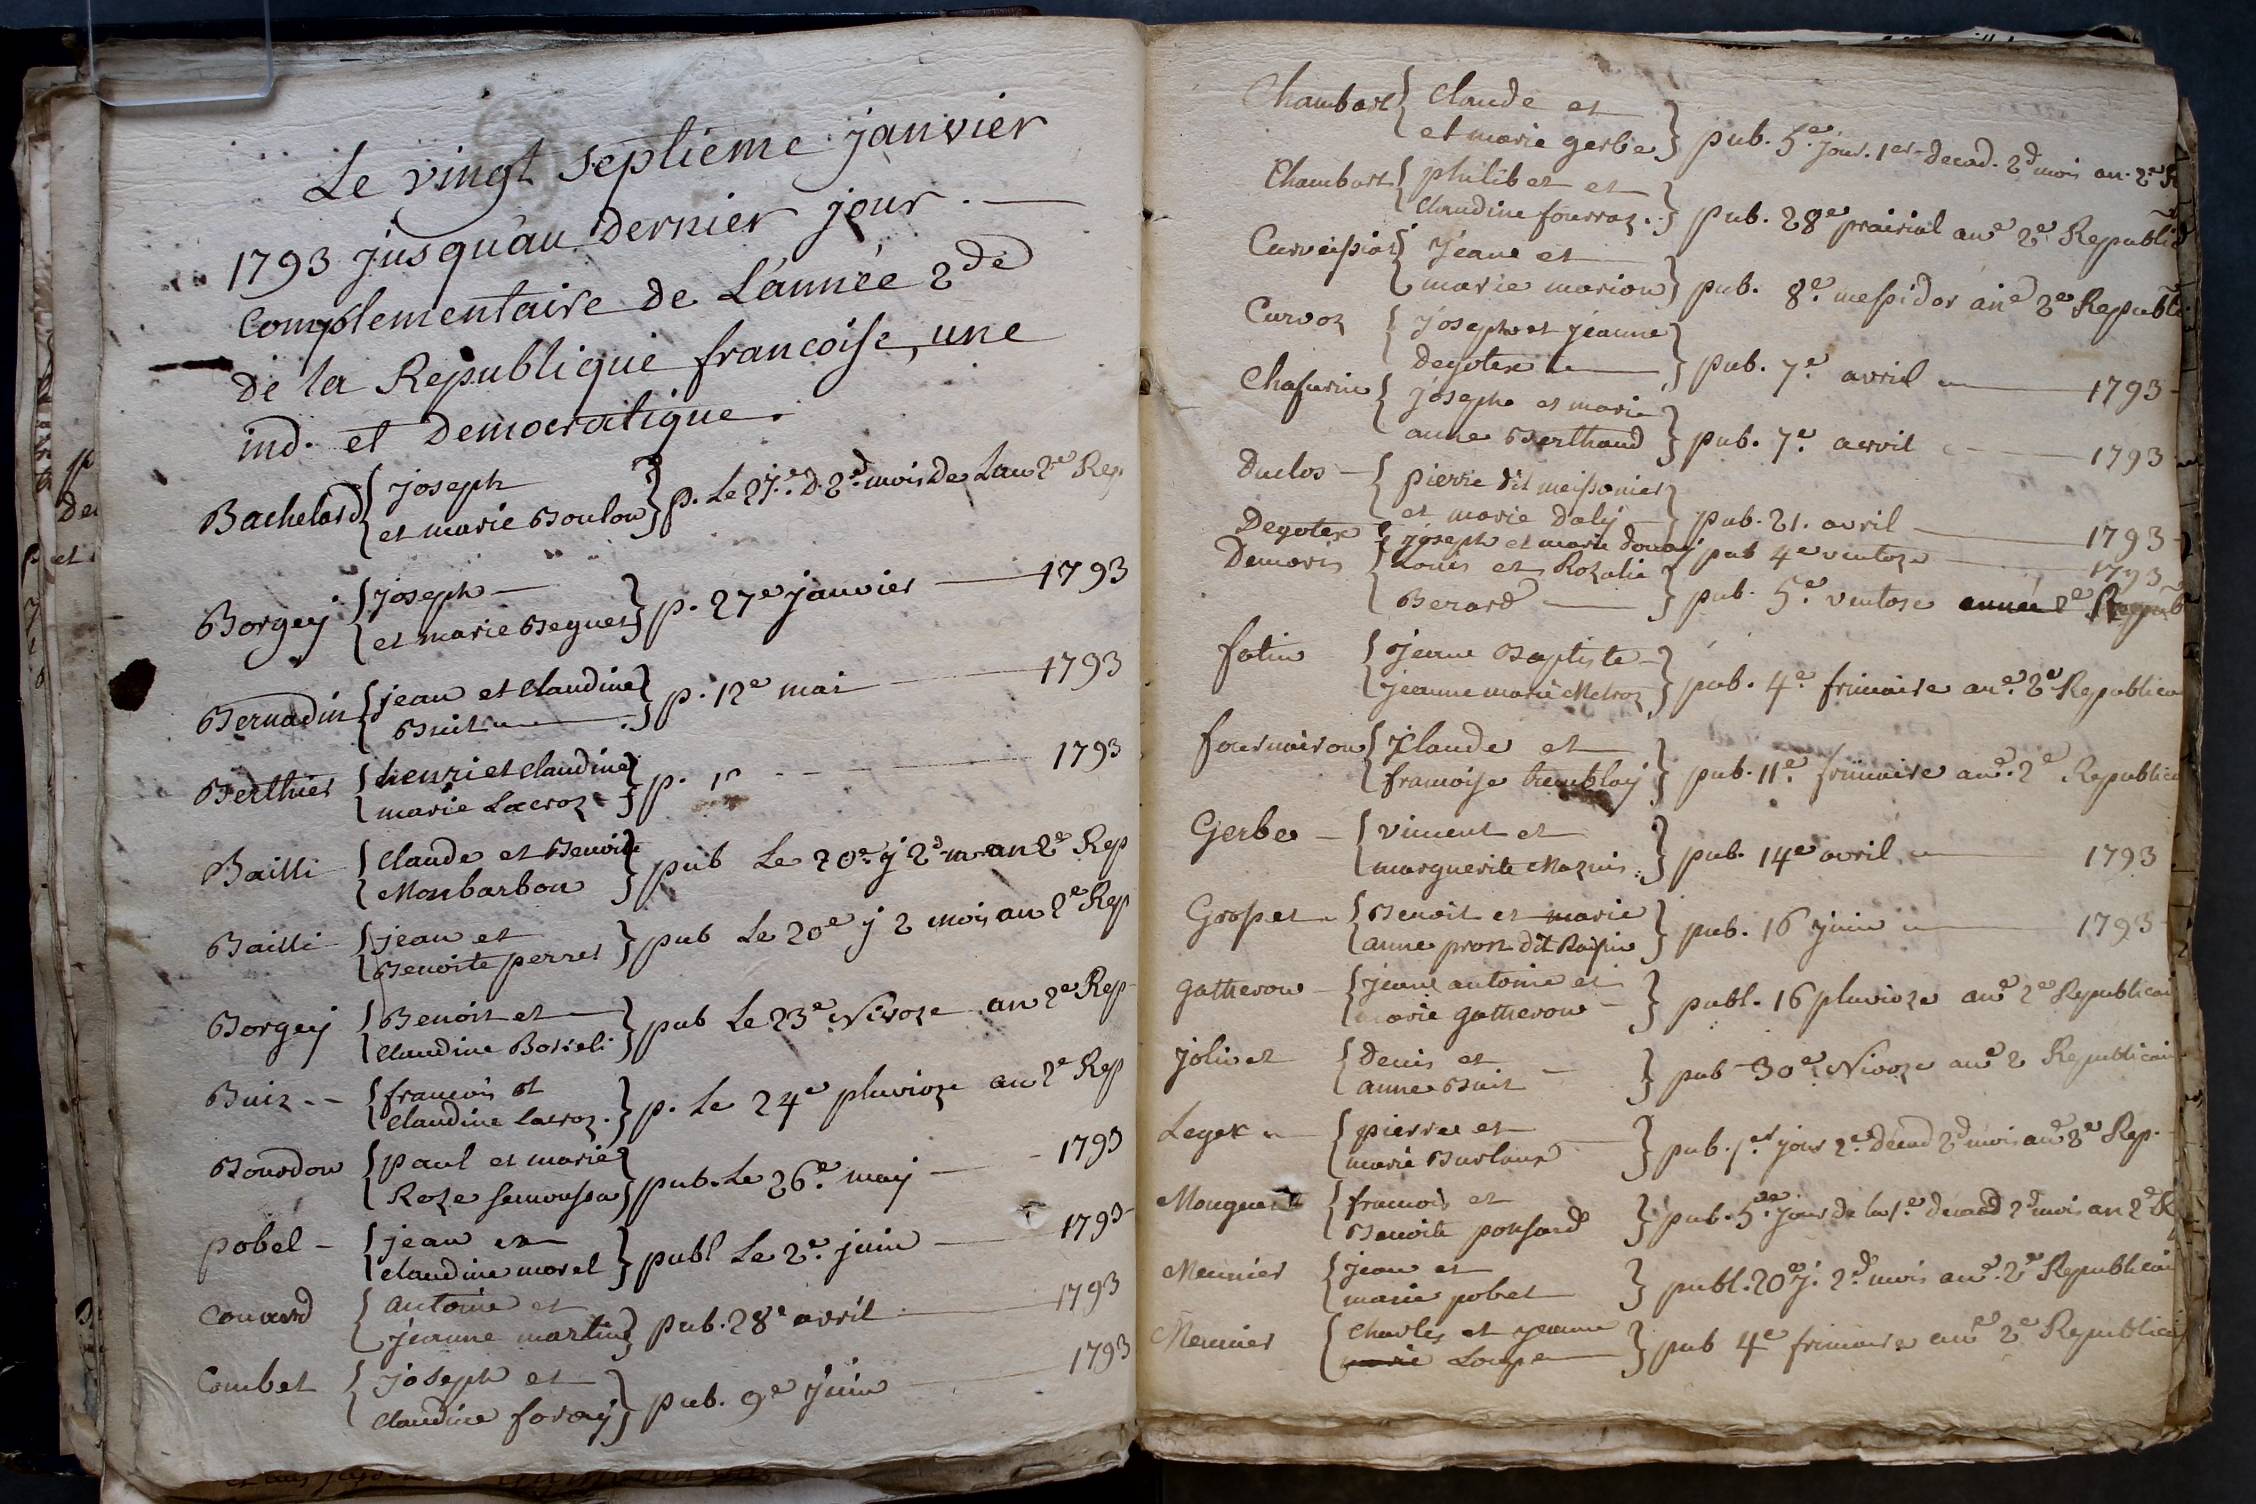 Le vingt septieme janvier
1793 jusqu'au Dernier jour.
Complementaire de L'année 2de
de la Republique francoise, une
ind. et Democratique.
Bachelard { joseph
et marie Boulon } p. Le 27e. d. 2d. mois de Lan 2e Rep
Borgey { joseph
et marie Beguet } p. 27e janvier 1793
Bernadin { jean et Claudine
Buit } p. 12e mai 1793
Berthier { henri et Claudine
marie Lacroz } p. 1793
Bailli { Claude et Benoite
Monbarbon } pub Le 20e j 2d m an 2e Rep
Bailli { jean et
Benoite perret } pub Le 20e j 2 mois an 2e Rep
Borgey { Benoit et
Claudine } pub Le 23e Nivoze an 2e Rep
Buiz { francois et
Claudine Lacroz. } p. Le 24e pluvioze an 2e Rep
Bourdon { paul et marie
Roze } pub. Le 26e. may 1793
pobel { jean et
Claudine morel } publ Le 2e. juin 1793
{ antoine et
jeanne martin } pub. 28e avril 1793
Combet { joseph et
Claudine foray } pub. 9e juin 1793
Chambart { Claude et
et marie gerbe } pub. 5e. jour. 1er decad. 2d mois an. 2e
Chambart { philibet et
Claudine fourraz. } pub. 28e prairial ane 2e Republi
{ jeane et
marie marion } pub. 8e. messidor ane 2e Republi
Curvoz { joseph et jeanne
Degotex } pub. 7e avril 1793
{ josephe et marie
anne Berthaud } pub. 7e avril 1793
Duclos { pierre dit meissonier
et marie daly } pub. 21. avril 1793
Degotex { joseph et marie pub 4e ventoze 1793
Demoris { Louis et Rozalie
Berard } pub. 5e. ventose année 2e Repub
fatin { jeane Baptiste
jeanne marie } pub. 4e. frimaire ane. 2e Republica
{ Claude et
francoise tremblay } pub. 11e. frimaire ane. 2e Republica
Gerbe { vincent et
marguerite Maznis. } pub. 14e avril 1793
Grosset { Benoit et marie
anne pron dit } pub. 16 juin 1793
gatheron { jeane antoine et
marie gatheron } publ. 16 pluvioze ane 2e Republicai
jolivet { denis et
anne Buit } pub 30e Nivoze ane 2 Republicai
Leger { pierre et
marie } pub. 1er jour 2e. décad 2d mois ane 2e Rep.
{ francois et
Benoite ponsard } pub. 5e. jour de la 1e decad 2d mois an 2d
Meunier { jean et
marie pobel } publ. 20e j. 2d mois ane. 2e Republicai
Meunier { Charles et jeanne
Loupe } pub 4e frimaire ane 2e Republicai